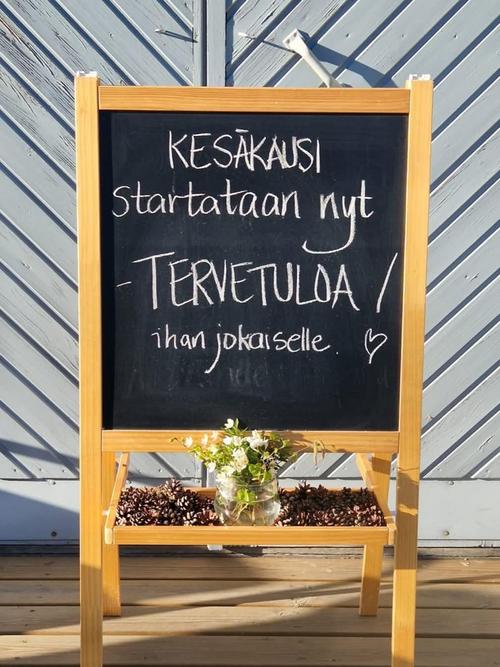 KESÄKAUSI
startataan nyt
-TERVETULOA /
ihan jokaiselle. ♡